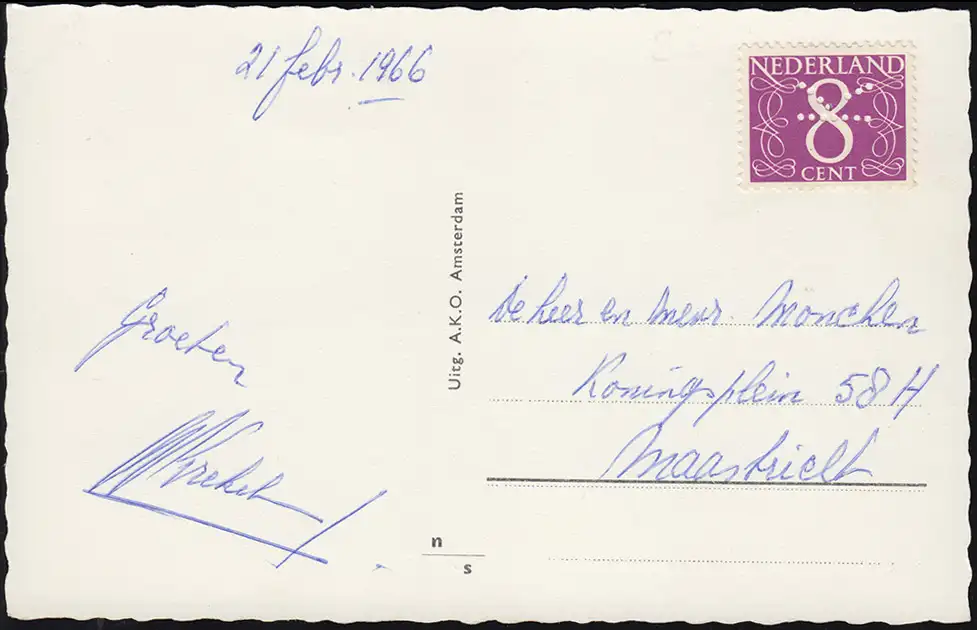 21 febr. 1966
NEDERLAND
8
CENT
Uitg. A.K.O. Amsterdam
De heer en mevr. Monchen
Koningsplein 58 H
Maastricht
Groeten
n
s